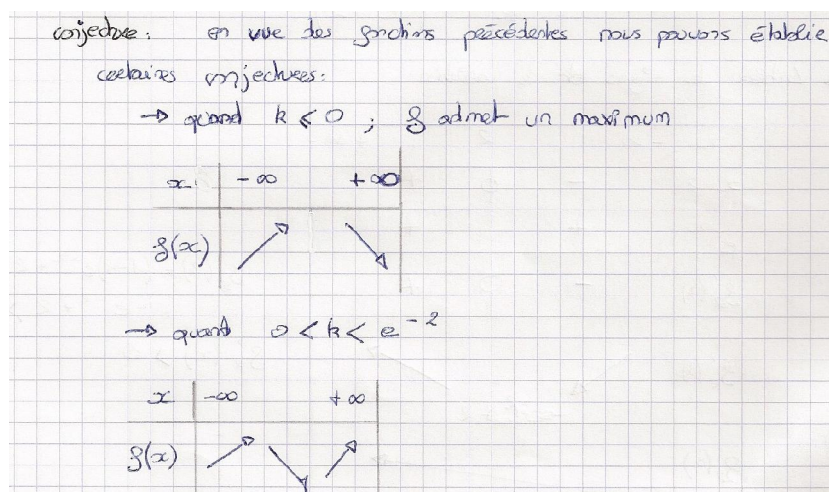 conjecture : en vue des fonctions précédentes nous pouvons établir
certaines conjectures :
→ quand k ⩽ 0 ; f admet un maximum
x -∞ +∞
f(x) ↗ ↘
→ quand 0 < k < e⁻²
x -∞ +∞
f(x) ↗ ↘ ↗